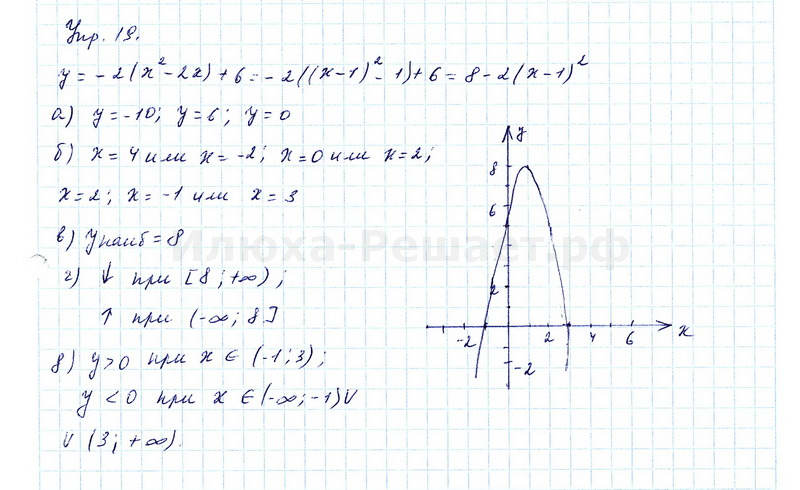 Упр. 19.
y = -2(x² - 2x) + 6 = -2((x-1)² - 1) + 6 = 8 - 2(x-1)²
а) y = -10; y = 6; y = 0
б) x = 4 или x = -2; x = 0 или x = 2;
x = 2; x = -1 или x = 3
в) y наиб = 8
г) ↓ при [8; +∞);
↑ при (-∞; 8]
д) y > 0 при x ∈ (-1; 3);
y < 0 при x ∈ (-∞; -1) ∪
∪ (3; +∞).
y
8
6
2
-2 2 4 6 x
-2
Илюха-Решает.рф